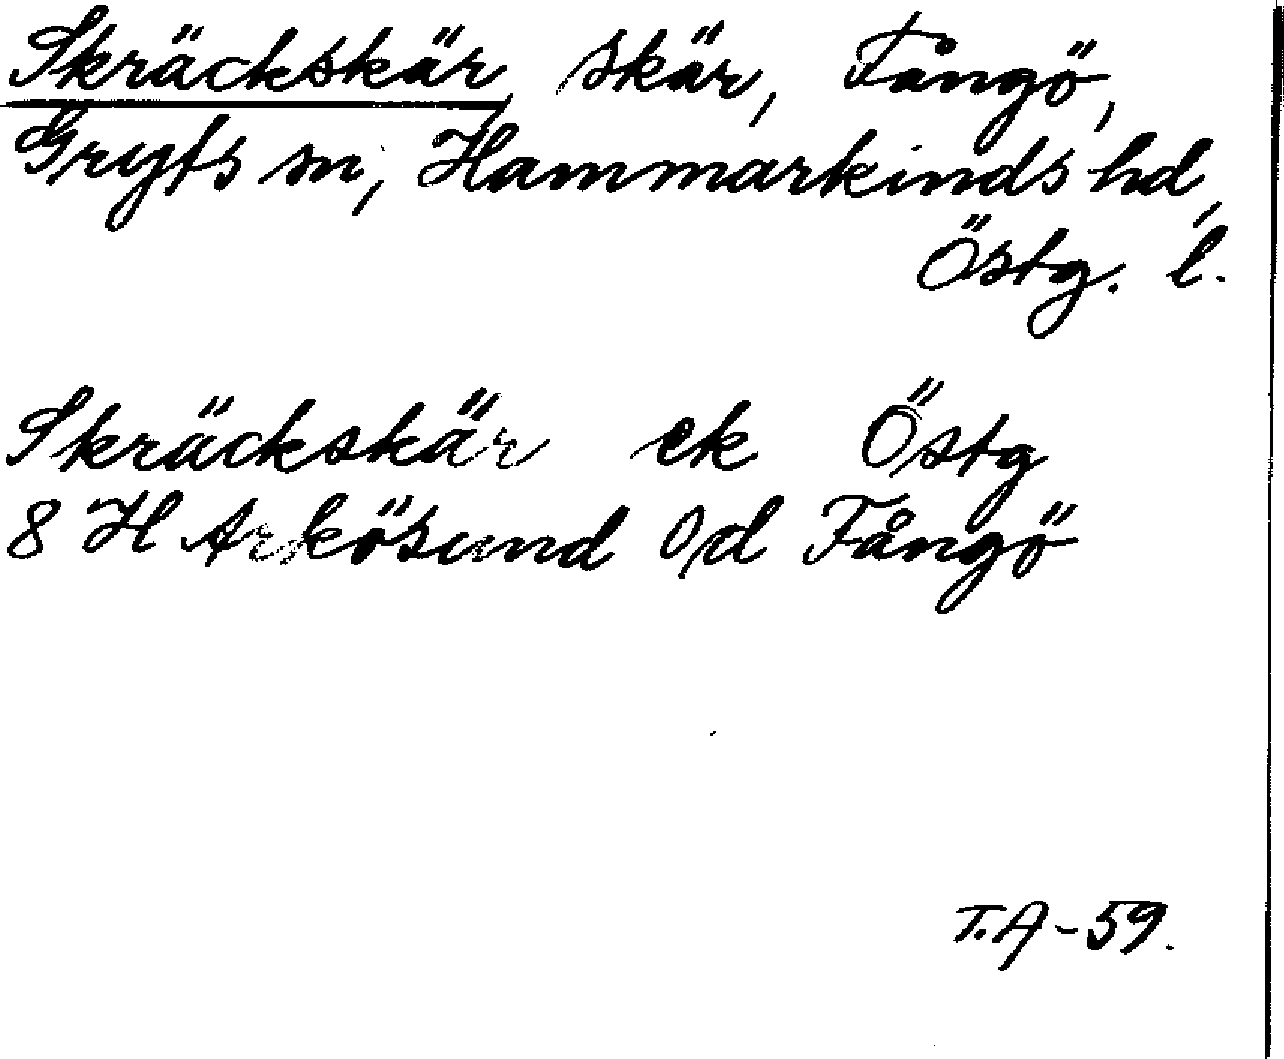 Skräckskär, skär, Fångö,
Gryts sn, Hammarkinds hd,
Östg. l.
Skräckskär ek Östg
8 H Arkösund Od Fångö
T.A-59.